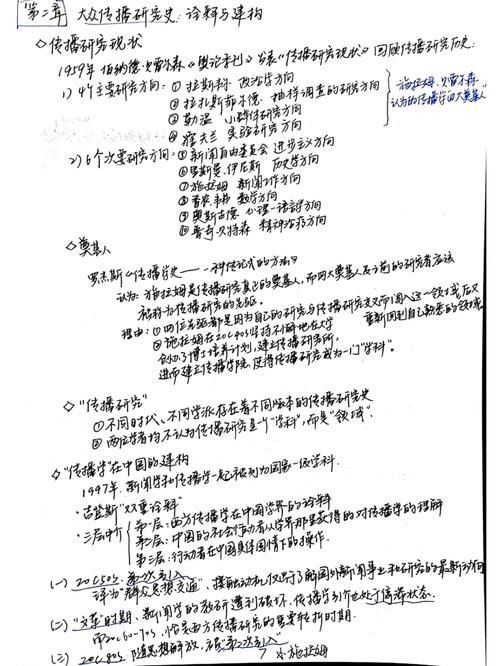 第二章 大众传播研究史:诠释与建构
◇传播研究现状
1959年 伯纳德·贝雷尔森《舆论季刊》发表《传播研究现状》回顾传播研究历史:
1) 4个主要研究方向: ① 拉斯韦尔 政治学方向
② 拉扎斯菲尔德 抽样调查的研究方向
③ 勒温 小群体研究方向
④ 霍夫兰 实验研究方向
施拉姆、贝雷尔森 认为的传播学四大奠基人
2) 6个次要研究方向: ① 新闻自由委员会 进步主义方向
② 里斯曼、伊尼斯 历史学方向
③ 施拉姆 新闻工作方向
④ 香农、韦弗 数学方向
⑤ 奥斯古德 心理-语言学方向
⑥ 鲁奇、贝特森 精神治疗方向
◇ 奠基人
罗杰斯《传播学史——一种传记式的方法》
认为:施拉姆是传播研究真正的奠基人,而四大奠基人及之前的研究者应该
被称为传播研究的先驱。
理由:①四位先驱都是因为自己的研究与传播研究交叉而闯入这一领域,后又
重新回到自己熟悉的领域。
②施拉姆在20C40s坚持不懈地在大学
创办了博士培养计划,建立传播研究所,
进而建立传播学院,使得传播研究成为一门“学科”。
◇“传播研究”
①不同时代、不同学派存在着不同版本的传播研究史
②两位学者均不认为传播研究是个“学科”,而是“领域”.
◇“传播学”在中国的建构
1997年.新闻学和传播学一起被列为国家一级学科.
·吉登斯“双重诠释”
·三层分析 第一层:西方传播学在中国学界的诠释
第二层:中国的社会行动者从学界那里获得的对传播学的理解
第三层:行动者在中国具体国情下的操作.
(一) 20C50s.第一次引入
译为“群众思想交通”、接触动机仅出于了解国外新闻事业和研究的最新动向
(二)“文革”时期、新闻学的教研遭到破坏.传播学引介也处于停滞状态.
而20C60-70s,恰是西方传播研究的重要转折时期.
(三) 20C80s 随思想解放,“第二次引入”
施拉姆